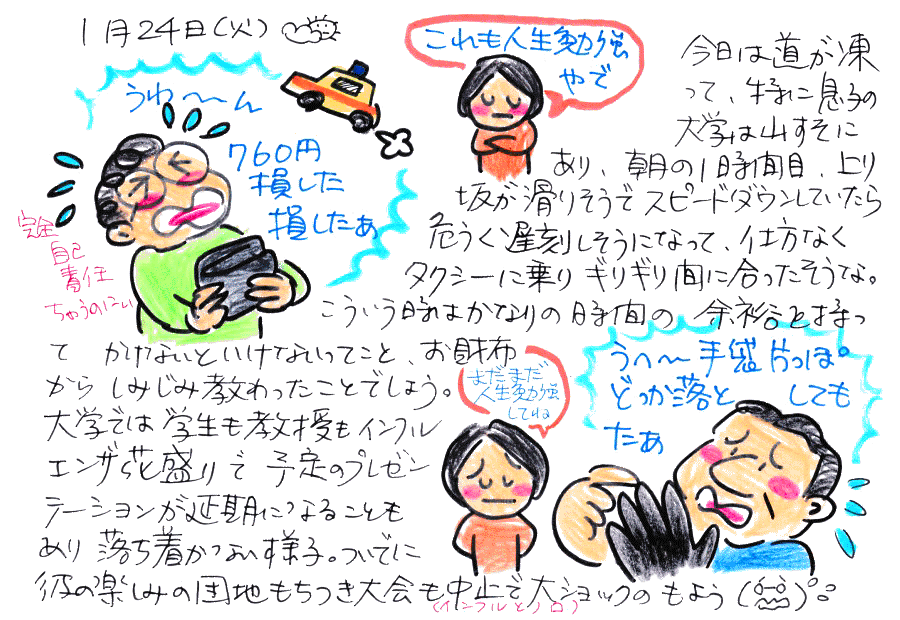 1月24日(火)
これも人生勉強
やで
うわ〜〜ん
760円
損した
損したぁ
完全
自己
責任
ちゃうのにぃ
今日は道が凍
って、特に息子の
大学は山すそに
あり、朝の1時間目、上り
坂が滑りそうでスピードダウンしていたら
危うく遅刻しそうになって、仕方なく
タクシーに乗りギリギリ間に合ったそうな。
こういう時はかなりの時間の余裕を持っ
てかないといけないってこと、お財布
からしみじみ教わったことでしょう。
大学では学生も教授もインフル
エンザ花盛りで予定のプレゼン
テーションが延期になることも
あり落ち着かない様子。ついでに
彼の楽しみの団地もちつき大会も中止で大ショックのもよう
(インフルとノロ)
まだまだ
人生勉強
してね
うへ〜〜手袋片っぽ。
どっか落としても
たぁ